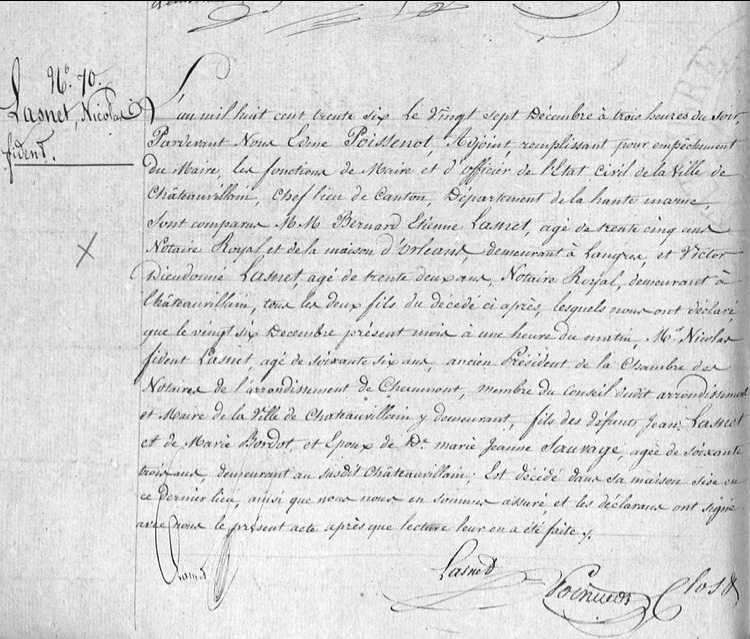 No. 70.
Lasnet, Nicolas
fident.
L'an mil huit cent trente six le vingt sept Décembre à trois heures du soir,
Pardevant Nous Edme Poissenot, Adjoint, remplissant pour empêchement
du Maire, les fonctions de Maire et d'officier de l'Etat civil de la Ville de
Châteauvillain, chef lieu de Canton, Département de la haute marne,
sont comparus M.M. Bernard Etienne Lasnet, agé de trente cinq ans
Notaire Royal et de la maison d'Orléans, demeurant à Langres, et Victor
Dieudonné Lasnet, agé de trente deux ans, Notaire Royal, demeurant à
Châteauvillain, tous les deux fils du décédé ci après, lesquels nous ont déclaré
que le vingt six Decembre présent mois à une heure du matin, Mr. Nicolas
fident Lasnet, agé de soixante six ans, ancien Président de la Chambre des
Notaires de l'arrondissement de Chaumont, membre du Conseil dudit arrondissement
et Maire de la Ville de Chateauvillain y demeurant, fils des défunts Jean Lasnet
et de Marie Bordot, et Epoux de De. marie Jeanne Sauvage, agée de soixante
trois ans, demeurant au susdit Châteauvillain; Est décédé dans sa maison sise en
ce dernier lieu, ainsi que nous nous en sommes assuré et les déclarans ont signé
avec nous le présent acte après que lecture leur en a été faite.
Lasnet